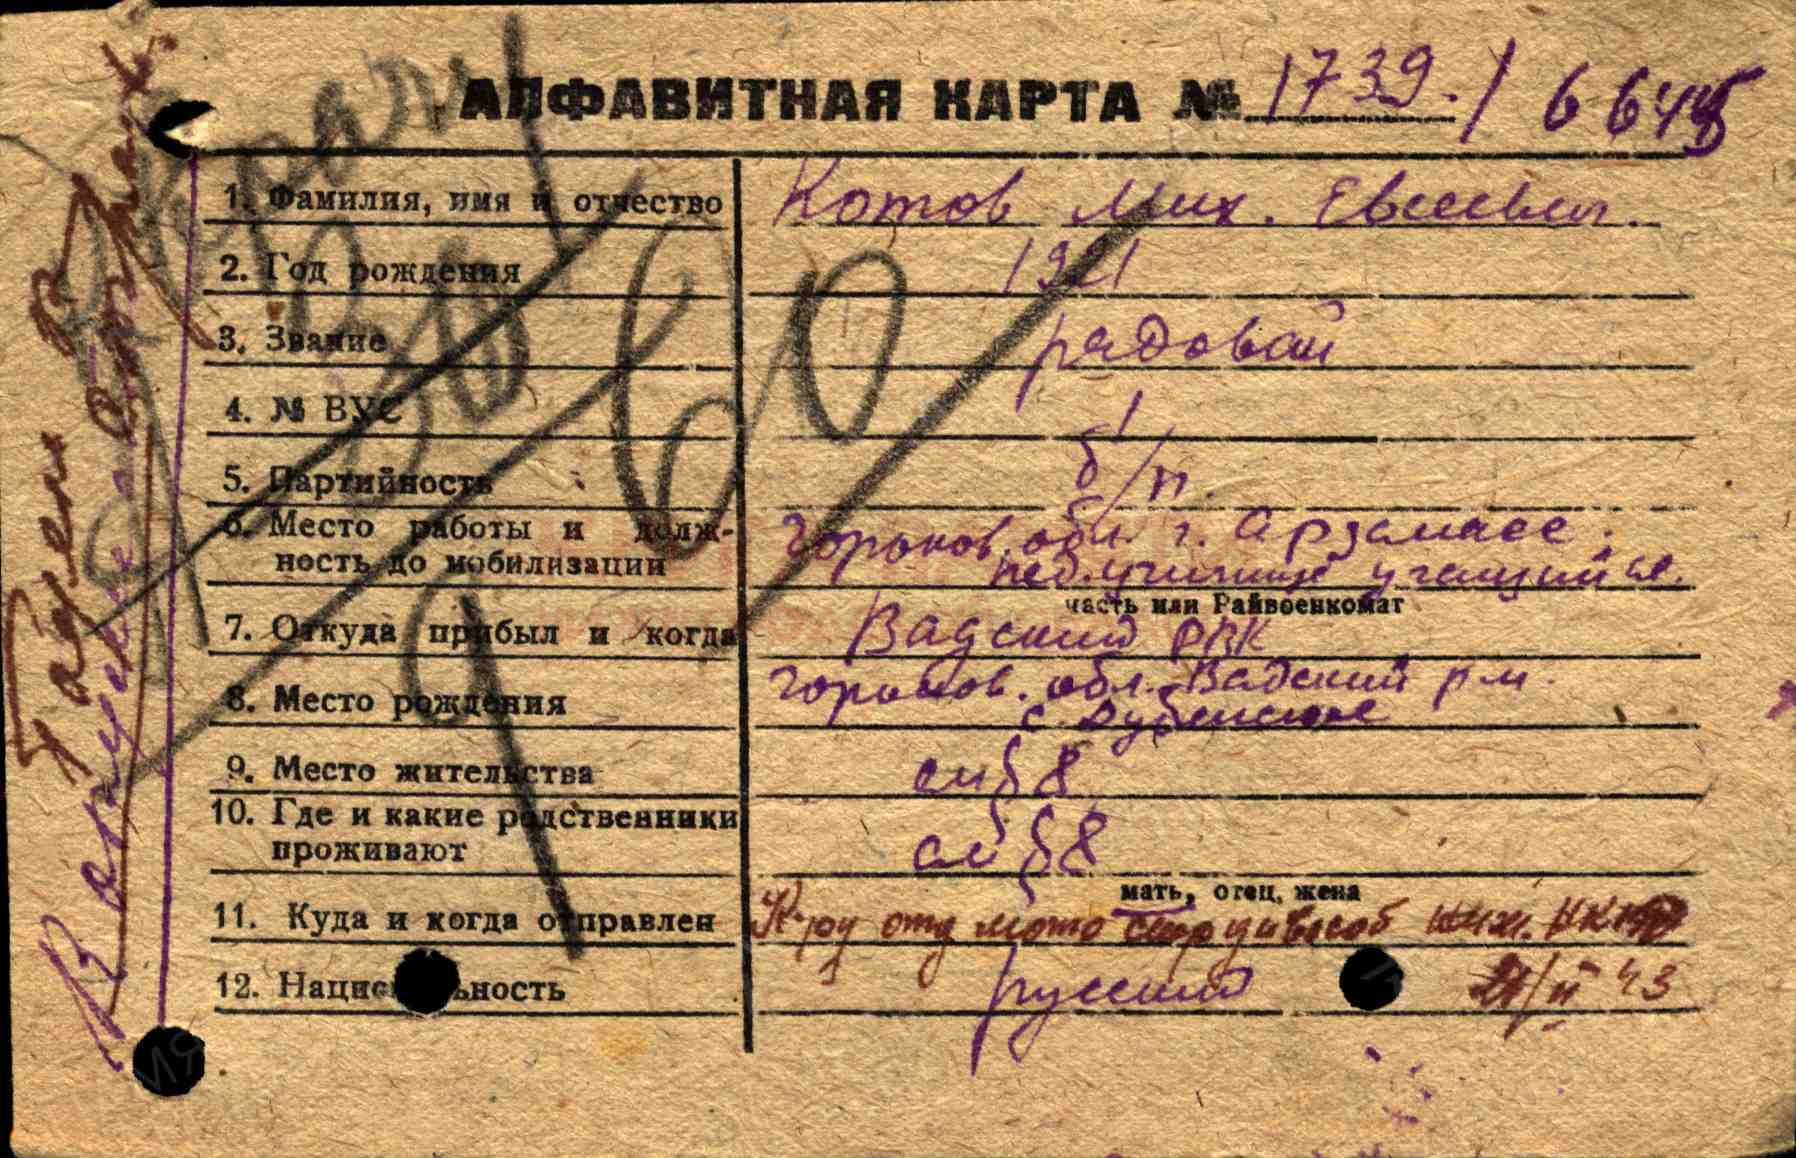 АЛФАВИТНАЯ КАРТА № 1739. / 6645
1. Фамилия, имя и отчество Котов Мих. Евсеевич.
2. Год рождения 1921
3. Звание рядовой
4. № ВУС
5. Партийность б/п.
6. Место работы и долж- Горьков. обл. г. Арзамасс.
ность до мобилизации педучилище учащийся.
часть или Райвоенкомат
7. Откуда прибыл и когда Вадский РВК
8. Место рождения Горьков. обл. Вадский р-н.
с. Дубенское
9. Место жительства см § 8
10. Где и какие родственники
проживают см § 8
мать, отец, жена
11. Куда и когда отправлен К-ру отд мото
12. Национальность русский 43
Годен в